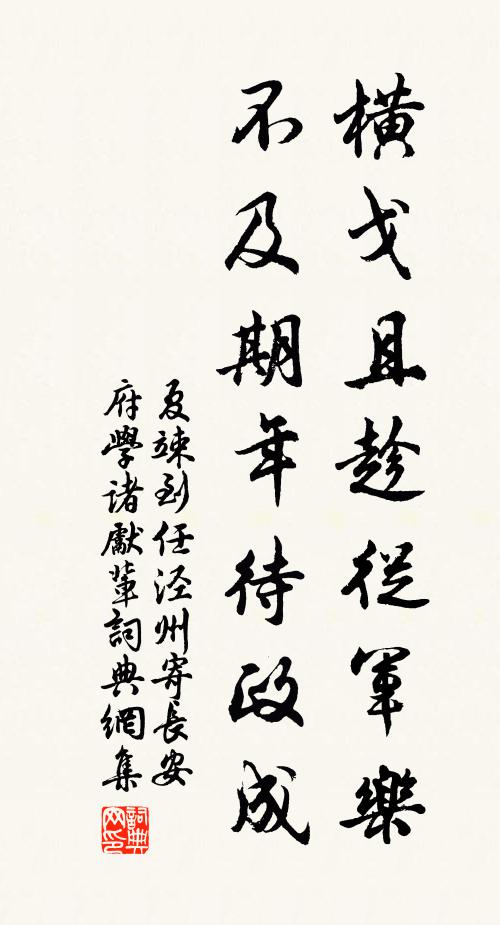 橫戈且趁從軍樂
不及期年待政成
夏竦到任涇州寄長安
府學諸獻輩詞典網集
詞典
网印